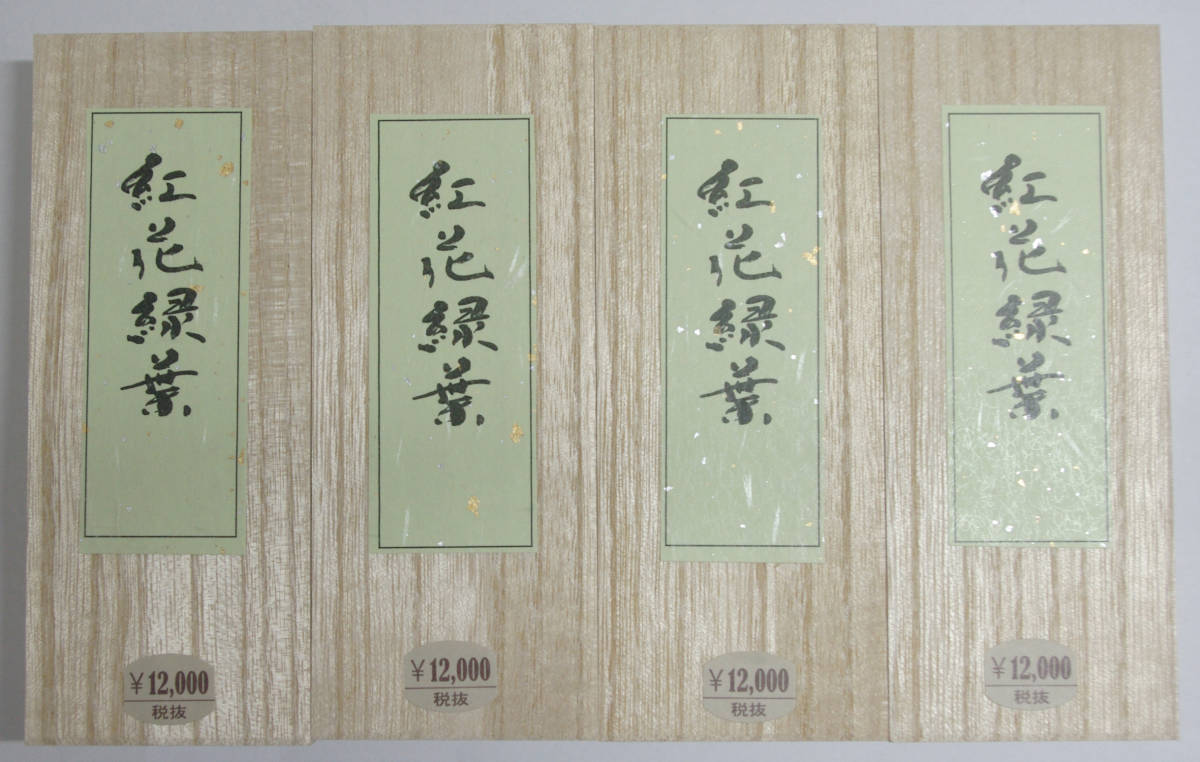 紅花緑葉
¥12,000
税抜
紅花緑葉
¥12,000
税抜
紅花緑葉
¥12,000
税抜
紅花緑葉
¥12,000
税抜